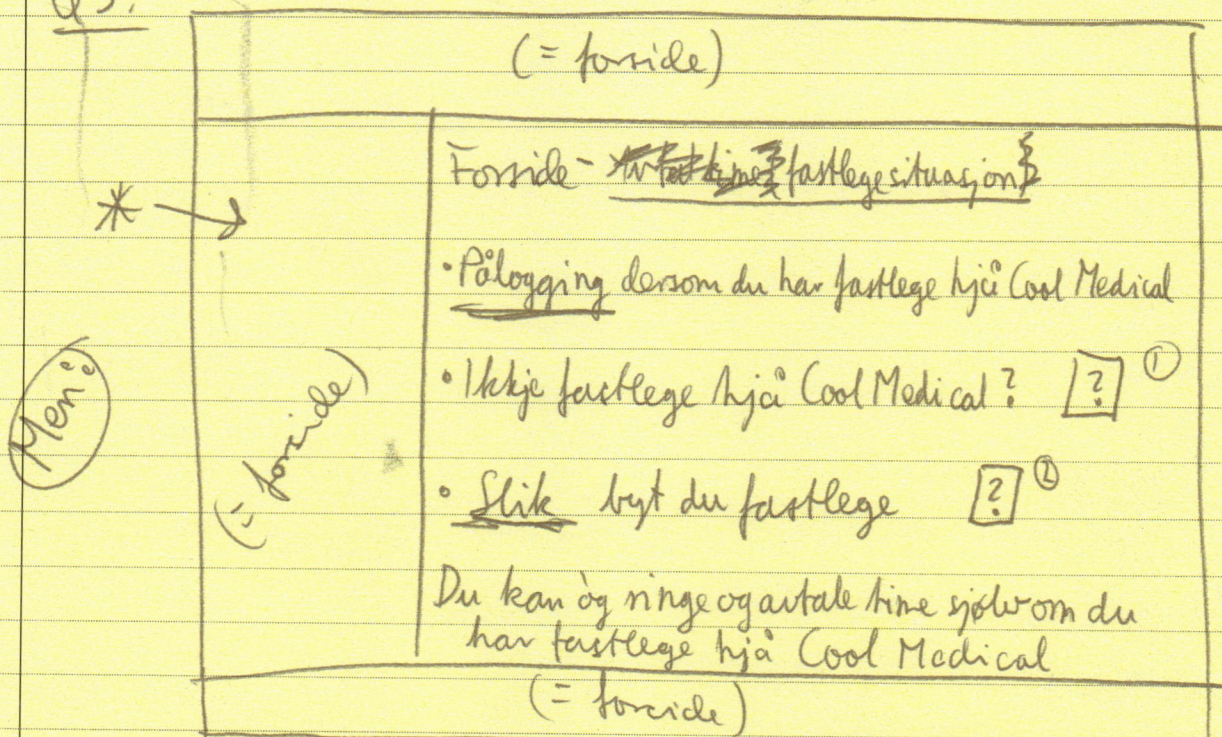 (= forside)
Forside - fastlegesituasjon
• Pålogging dersom du har fastlege hjå Cool Medical
• Ikkje fastlege hjå Cool Medical? ? ①
Men:
(= forside)
• Slik byt du fastlege ? ②
Du kan òg ringe og avtale time sjølv om du
har fastlege hjå Cool Medical
(= forside)